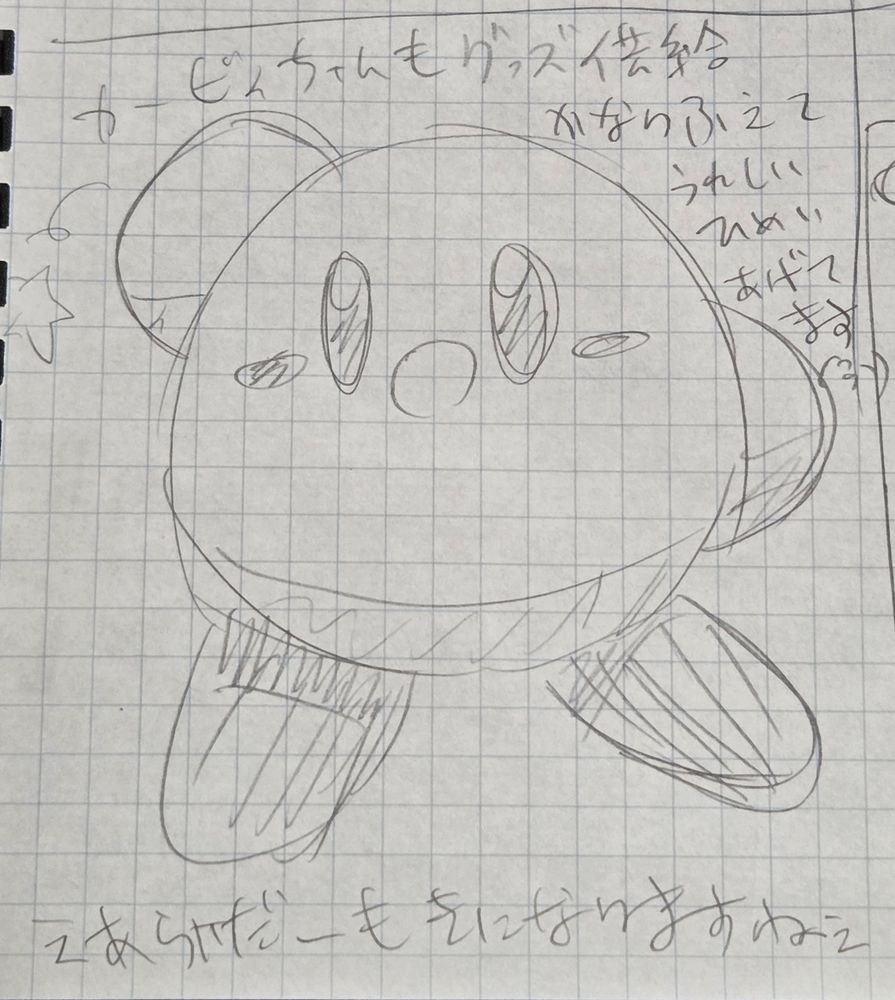 カービィちゃんもグッズ供給
かなりふえて
うれしい
ひめい
あげて
ます
えあらいだーも気になりますねえ